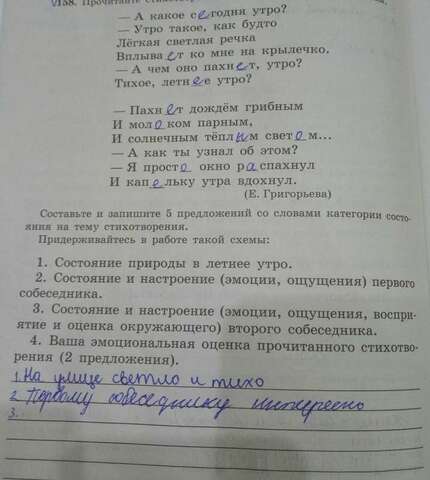 158. Прочитайте
— А какое сегодня утро?
— Утро такое, как будто
Лёгкая светлая речка
Вплывает ко мне на крылечко.
— А чем оно пахнет, утро?
Тихое, летнее утро?
— Пахнет дождём грибным
И молоком парным,
И солнечным тёплым светом...
— А как ты узнал об этом?
— Я просто окно распахнул
И капельку утра вдохнул.
(Е. Григорьева)
Составьте и запишите 5 предложений со словами категории состо-
яния на тему стихотворения.
Придерживайтесь в работе такой схемы:
1. Состояние природы в летнее утро.
2. Состояние и настроение (эмоции, ощущения) первого
собеседника.
3. Состояние и настроение (эмоции, ощущения, воспри-
ятие и оценка окружающего) второго собеседника.
4. Ваша эмоциональная оценка прочитанного стихотво-
рения (2 предложения).
1. На улице светло и тихо
2. Первому собеседнику интересно
3.